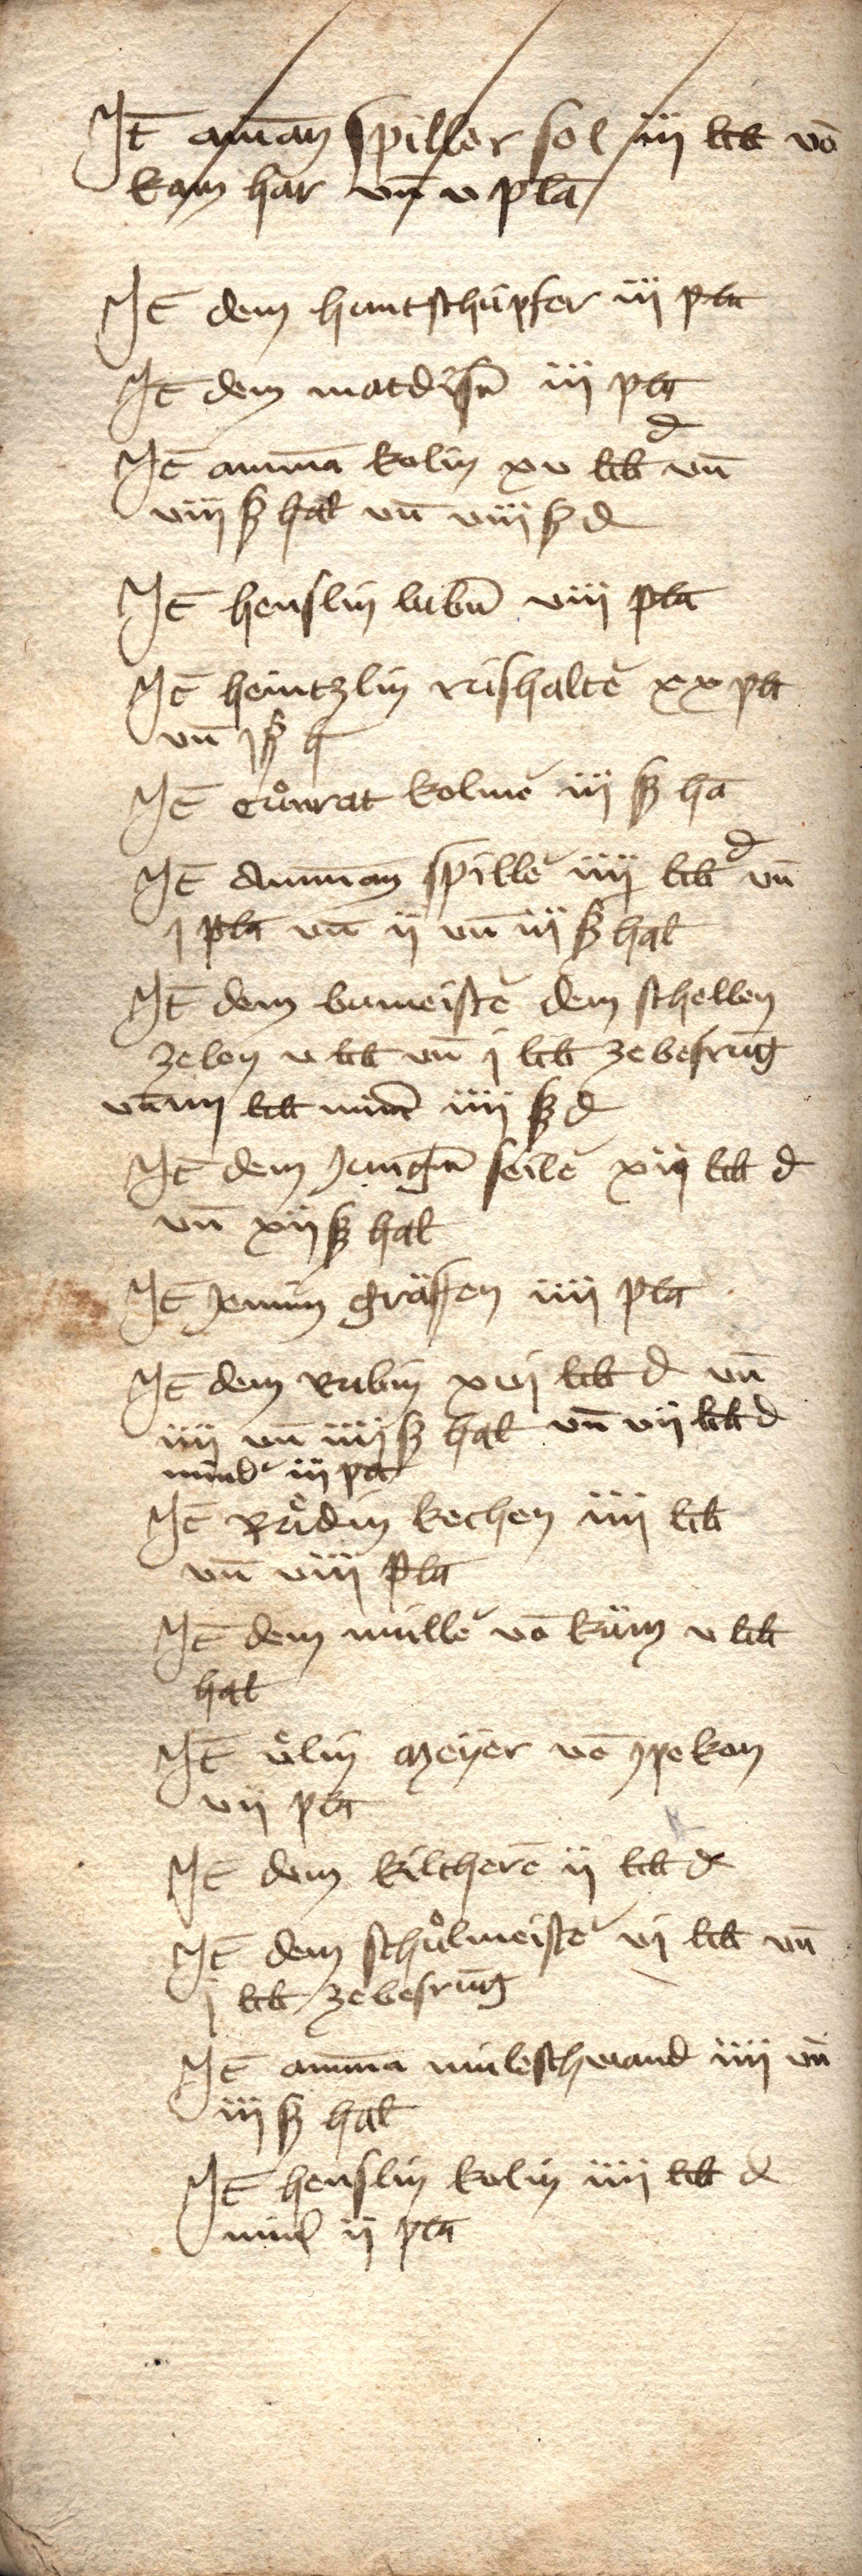 It̄ am̄an spiller sol iij lib vō
kam har vn̄ v pla
It̄ dem hantschüpfer iij pla
It̄ dem iij pla
It̄ amma kolin xv lib d vn̄
viij ß hal vn̄ viij ß d
It̄ henslin viij pla
It̄ heintzlin rishalt' xx pla
vn̄ j ß h
It̄ cuͦnrat kolme' iij ß ha
It̄ amman spille' iiij lib d vn̄
j pla vn̄ ij vn̄ iij ß hal
It̄ dem bumeiste' dem schellen
ze lon v lib vn̄ j lib ze besrūg
lib iiij ß d
It̄ dem seile' xij lib d
vn̄ xij ß hal
It̄ Jennin gräffen iiij pla
It̄ dem Rubin xvj lib d vn̄
iiij vn̄ iiij ß hal vn̄ vij lib d
mind' iij pla
It̄ Ruͤdin kechen iiij lib
vn̄ viij pla
It̄ dem mülle' vō käm v lib
hal
It̄ uͤlin meijer vō
vij pla
It̄ dem kilcherē ij lib d
It̄ dem schuͦlmeiste' vj lib vn̄
j lib ze besrūg
It̄ amma mileschwand iiij vn̄
iij ß hal
It̄ henslin kolin iiij lib d
mind ij pla